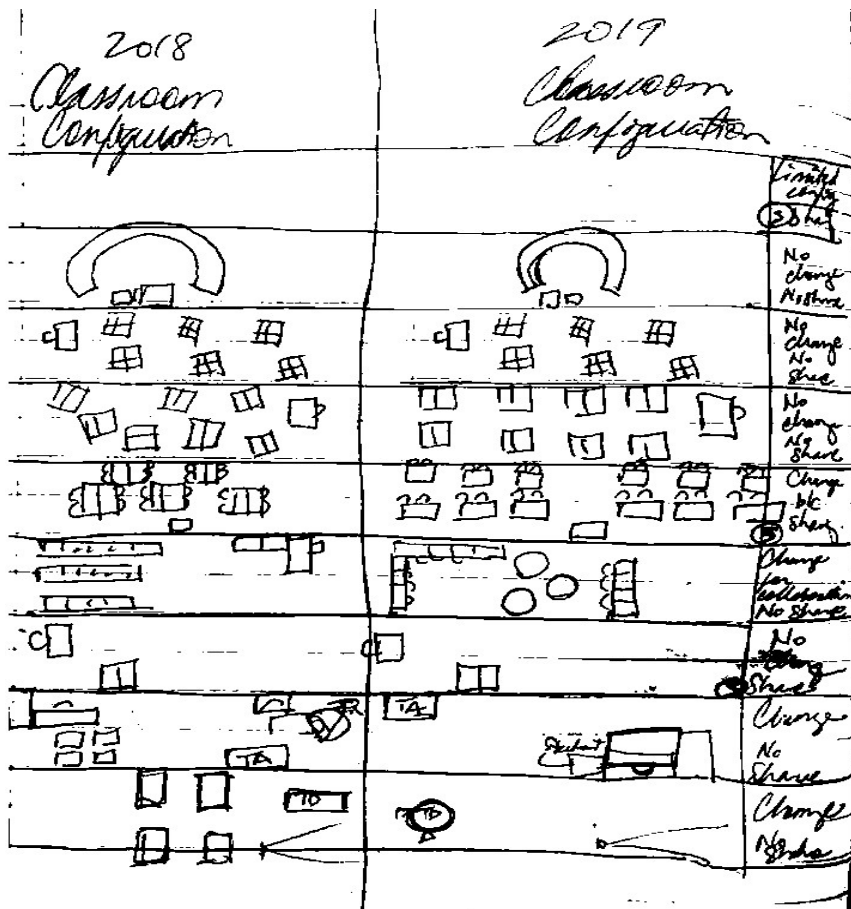 2018
Classroom
Configuration
2019
Classroom
Configuration
Limited
config
S Share
No
change
No share
No
change
No
share
No
change
No
share
Change
b/c
share
S
Change
for
collaboration
No share
No
share
TA
TA
Change
No
share
Change
No